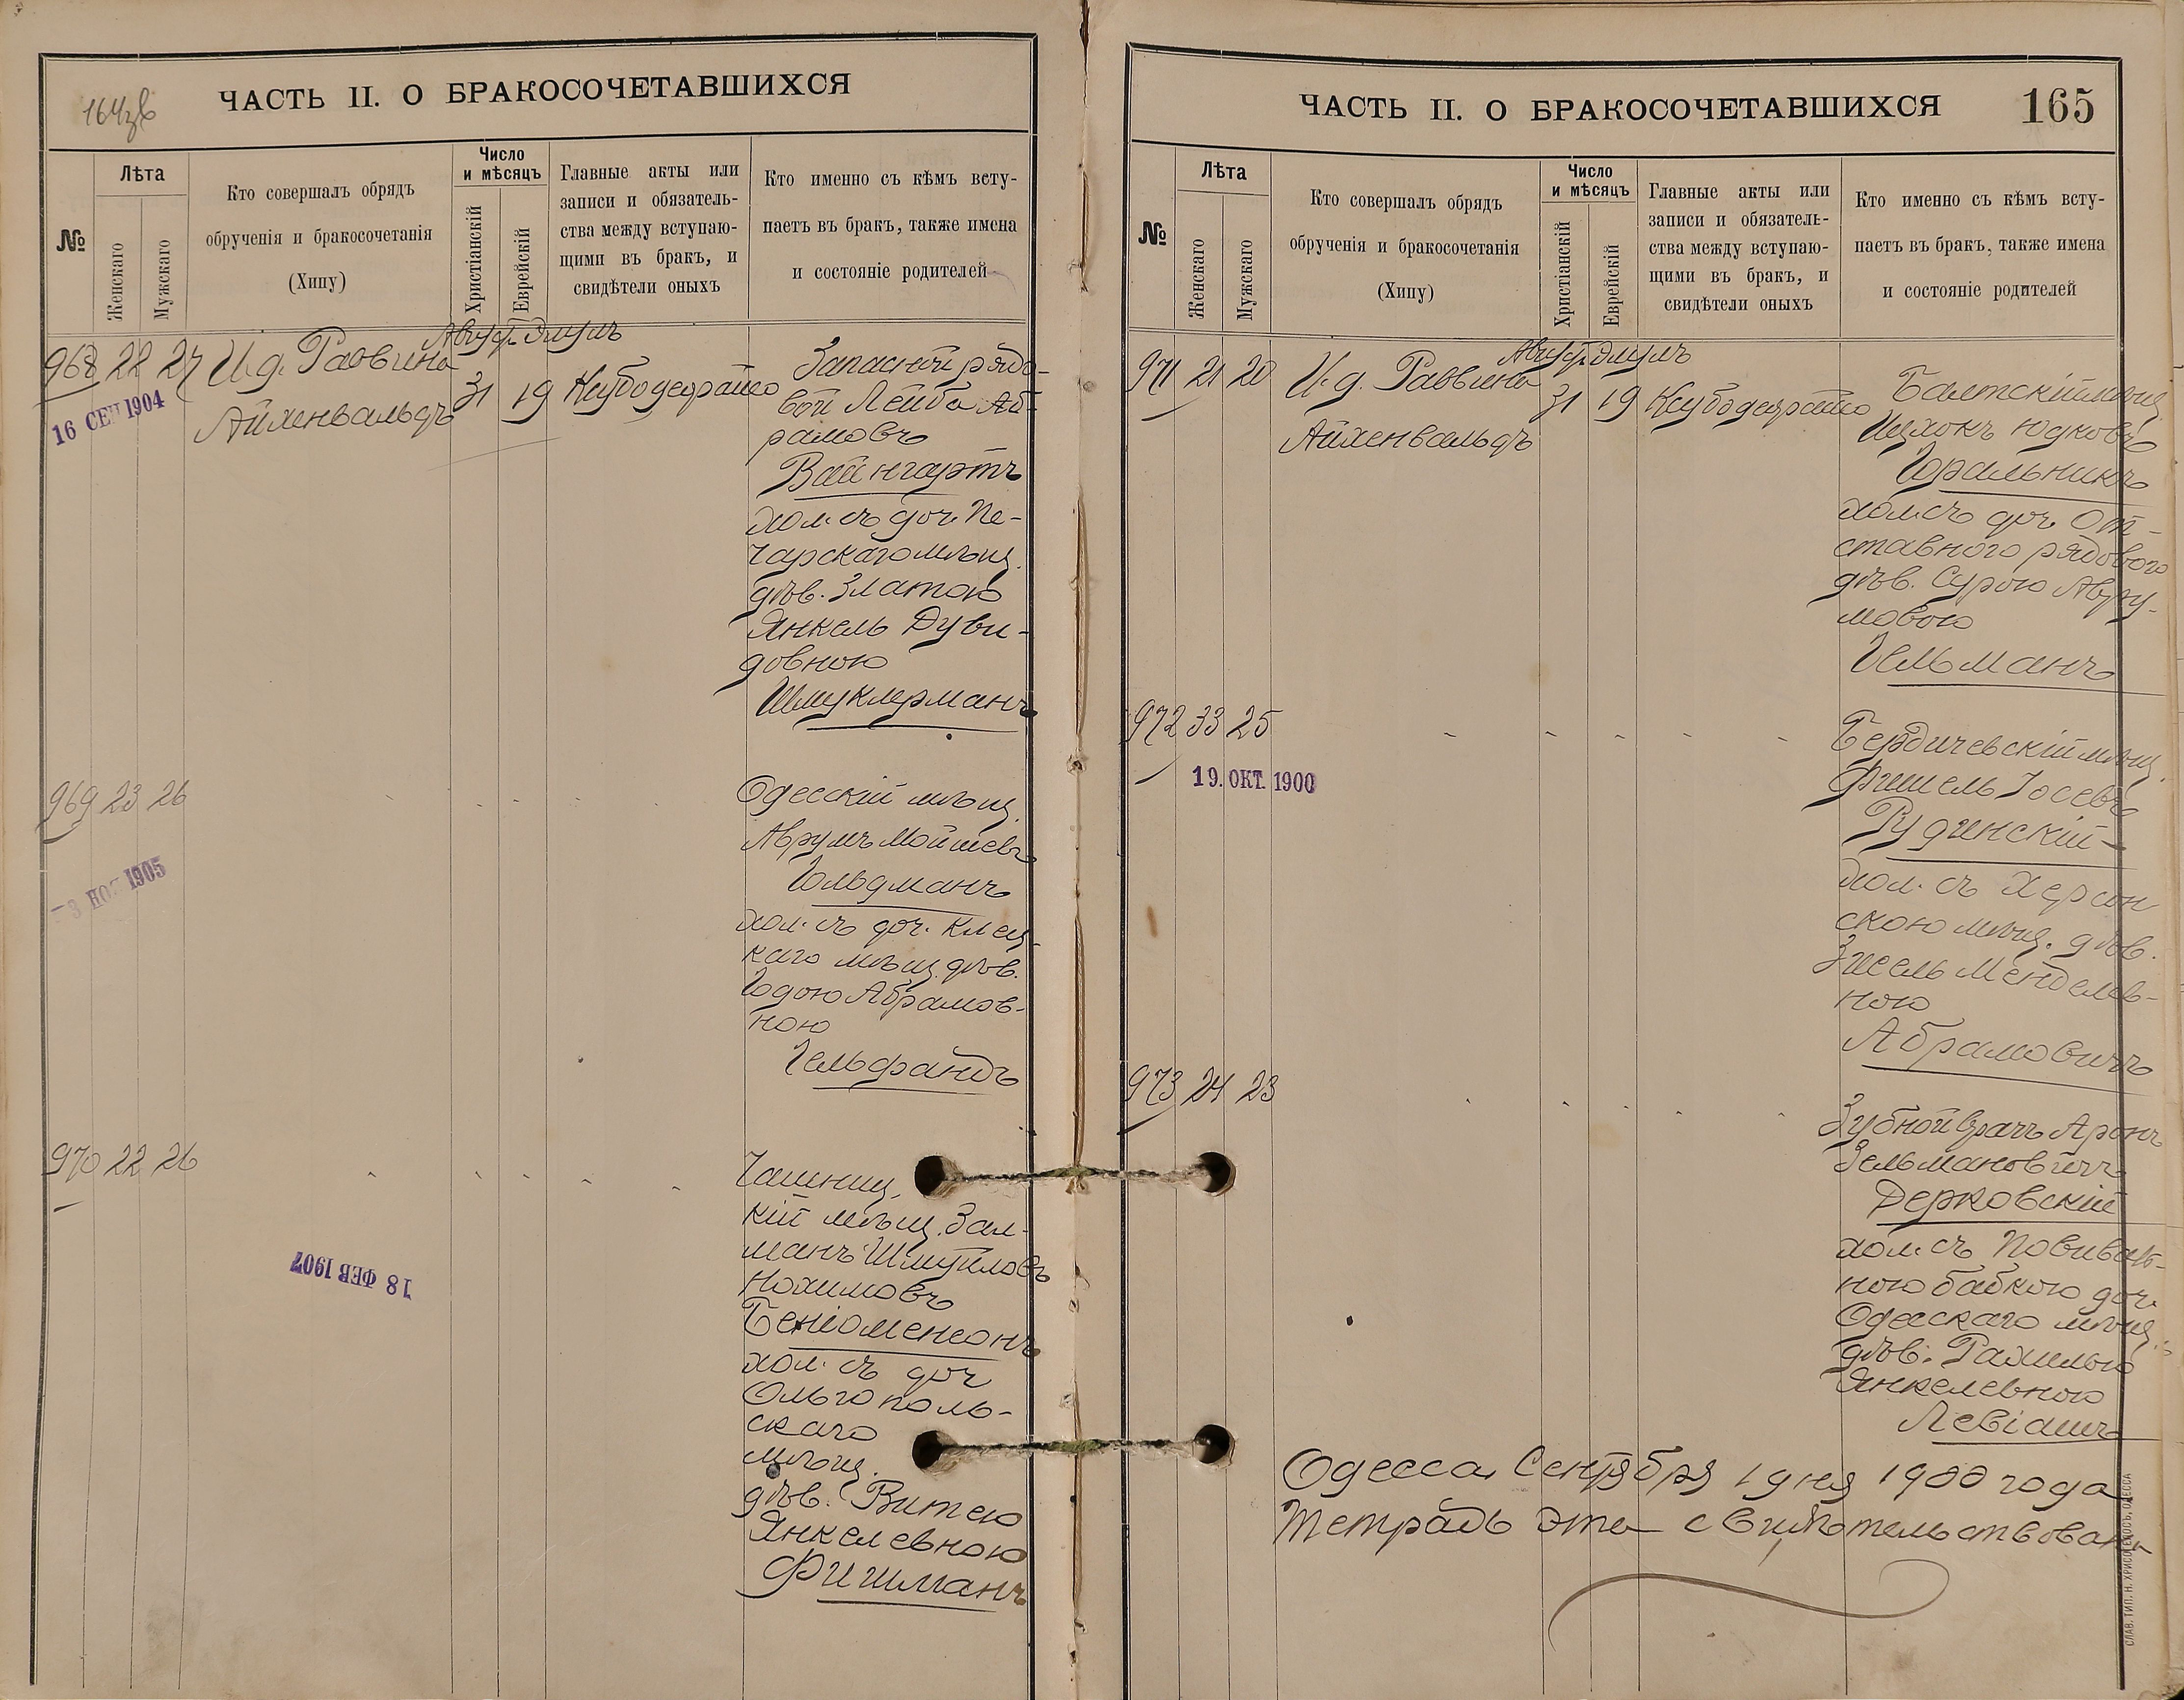 164 зв
ЧАСТЬ II. О БРАКОСОЧЕТАВШИХСЯ
№
Лѣта
Женскаго
Мужскаго
Кто совершалъ обрядъ
обрученія и бракосочетанія
(Хипу)
Число
и мѣсяцъ
Христіанскій
Еврейскій
Главные акты или
записи и обязатель-
ства между вступаю-
щими въ бракъ, и
свидѣтели оныхъ
Кто именно съ кѣмъ всту-
паетъ въ бракъ, также имена
и состояніе родителей
968 22 27 И. д. Раввина
Айхенвальдъ
Август. Элулъ
31 19
16 СЕН 1904
Запасный рядо-
вой Лейба Аб-
рамовъ
Вайнгартъ
хол. съ доч. Пе-
чарскаго мѣщ.
дѣв. Златою
Янкель Дуви-
довною
Шмуклерманъ
969 23 26
3 НОЯ 1905
Одесскій мѣщ.
Аврумъ Мойшевъ
Гольдманъ
хол. съ доч. Клец-
каго мѣщ. дѣв.
Годою Абрамов-
ною
Гельфандъ
970 22 26
18 ФЕВ 1907
Чашниц-
кій мѣщ. Зал-
манъ Шмуйловъ
Нохимовъ
Беніоменсонъ
хол. съ доч
Ольгополь-
скаго
мѣщ.
дѣв. Витею
Янкелевною
Фишманъ
ЧАСТЬ II. О БРАКОСОЧЕТАВШИХСЯ
165
№
Лѣта
Женскаго
Мужскаго
Кто совершалъ обрядъ
обрученія и бракосочетанія
(Хипу)
Число
и мѣсяцъ
Христіанскій
Еврейскій
Главные акты или
записи и обязатель-
ства между вступаю-
щими въ бракъ, и
свидѣтели оныхъ
Кто именно съ кѣмъ всту-
паетъ въ бракъ, также имена
и состояніе родителей
971 21 20 И. д. Раввина
Айхенвальдъ
Август. Элулъ
31 19
Балтскій мѣщ.
Ицхокъ Юдковъ
Гральникъ
хол. съ доч. От-
ставного рядового
дѣв. Сурою Авру-
мовою
Гельманъ
972 33 25
19. ОКТ. 1900
Бердичевскій мѣщ.
Фишель Іосевъ
Рудинскій
хол. съ Херсон
скою мѣщ. дѣв.
Зисель Менделев-
ною
Абрамовичъ
973 24 23
Зубной врачъ Аронъ
Зельмановичъ
Дерковскій
хол. съ Повиваль-
ною бабкою доч.
Одесскаго мѣщ.
дѣв. Рахилью
Янкелевною
Левіашъ
Одесса, Сентября 1 дня 1900 года
Тетрадь эта свидѣтельствована
СЛАВ. ТИП. Н. ХРИСОГЕЛОСЪ, ОДЕССА